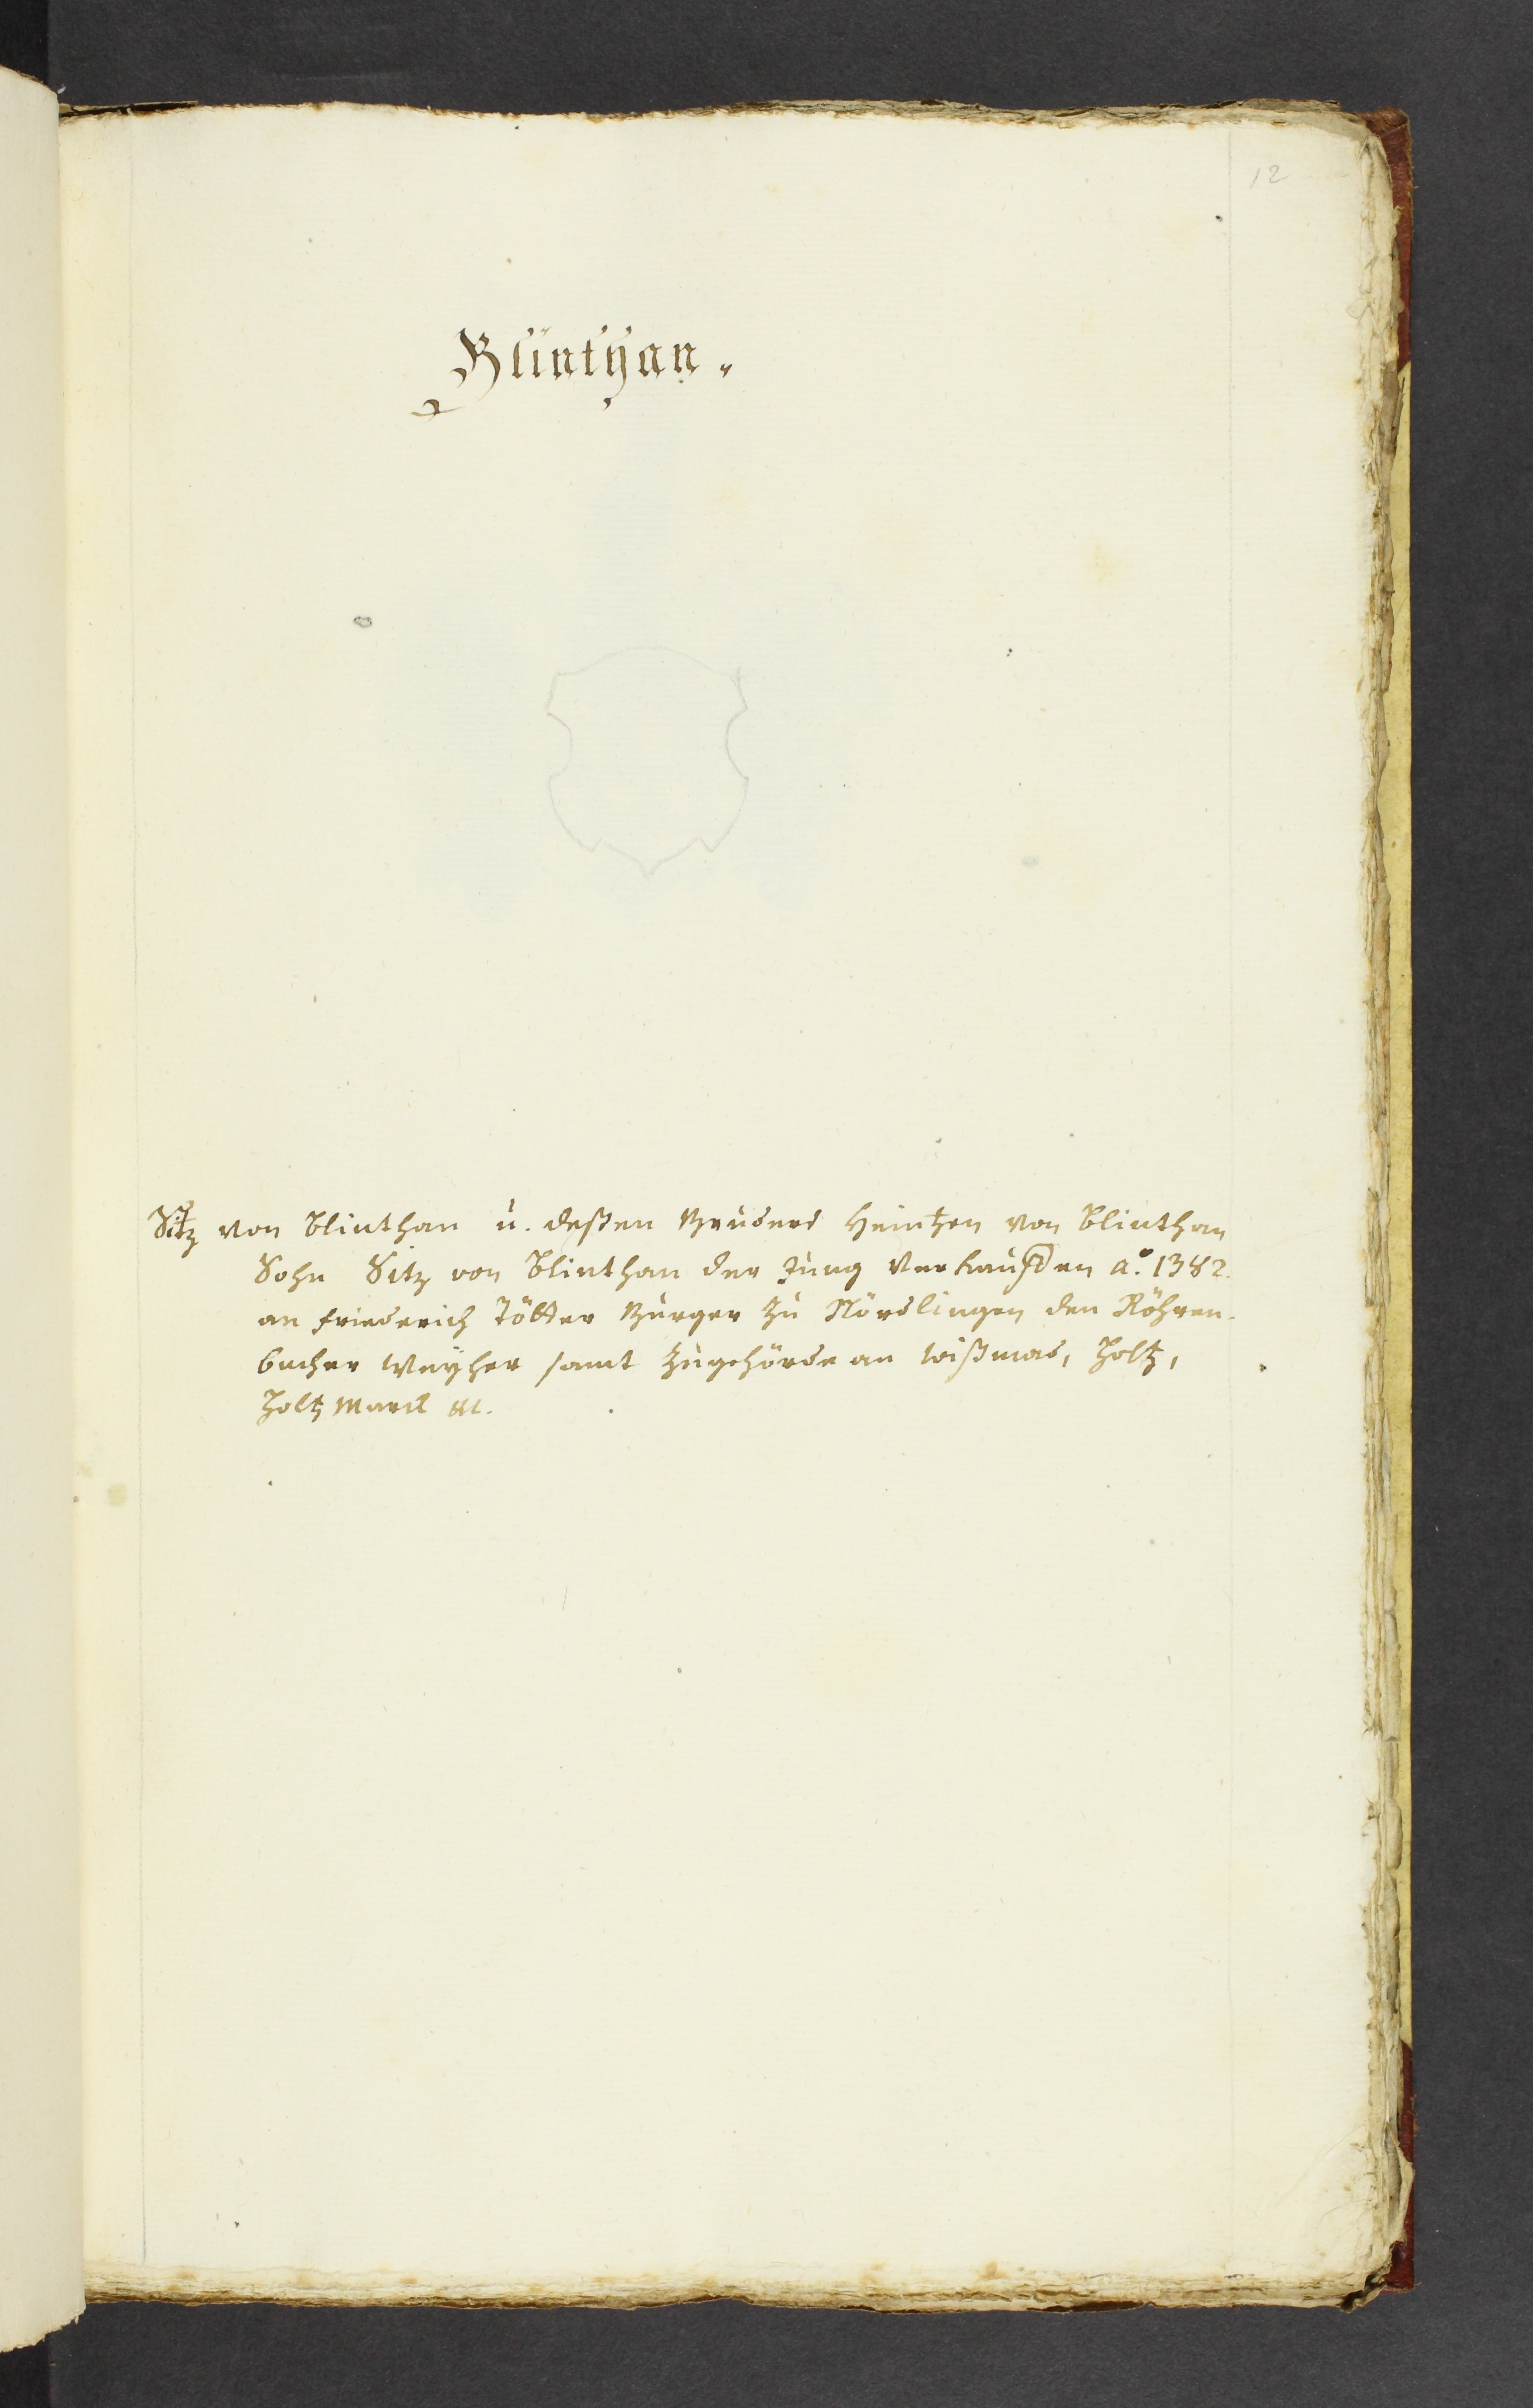 12
Blinthan.
Sitz von Blinthan u. deßen Bruders Heintzen von Blinthan
Sohn Sitz von Blinthan der Jung verkaufften aº. 1382.
an Friederich Tötter Burger zu Nördlingen den Röhren-
bacher Weyher samt Zugehörde an Wißmad, Holtz,
Holtz Marck etc.